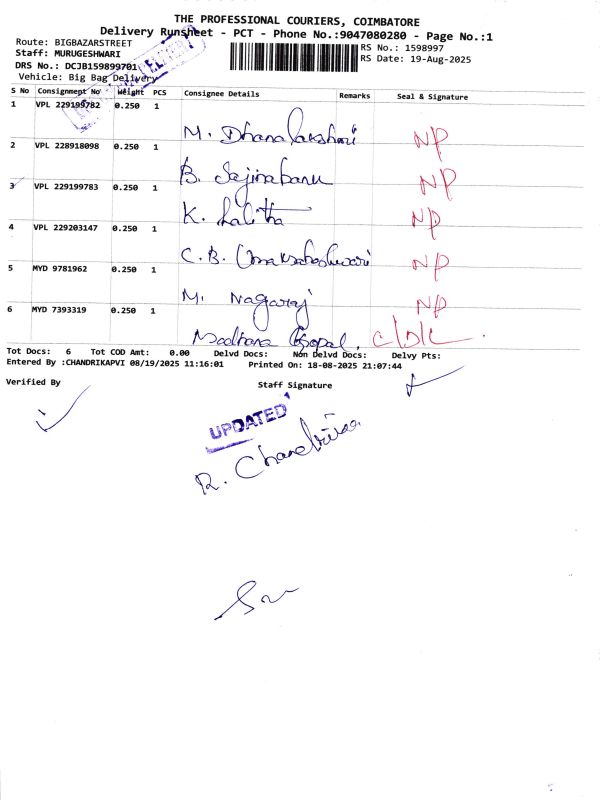 THE PROFESSIONAL COURIERS, COIMBATORE
Delivery Runsheet - PCT - Phone No.:9047080280 - Page No.:1
Route: BIGBAZARSTREET
Staff: MURUGESHWARI
DRS No.: DCJB159899701
Vehicle: Big Bag Delivery
RS No.: 1598997
RS Date: 19-Aug-2025
S No Consignment No Weight PCS Consignee Details Remarks Seal & Signature
1 VPL 229199782 0.250 1 M. Dhanalakshmi NP
2 VPL 228918098 0.250 1 B. Sajinabanu NP
3 VPL 229199783 0.250 1 K. Lalitha NP
4 VPL 229203147 0.250 1 C.B. Umamaheshwari NP
5 MYD 9781962 0.250 1 M. Nagaraj NP
6 MYD 7393319 0.250 1 Gopal.
Tot Docs: 6 Tot COD Amt: 0.00 Delvd Docs: Non Delvd Docs: Delvy Pts:
Entered By :CHANDRIKAPVI 08/19/2025 11:16:01 Printed On: 18-08-2025 21:07:44
Verified By Staff Signature
UPDATED
R. Chandrika